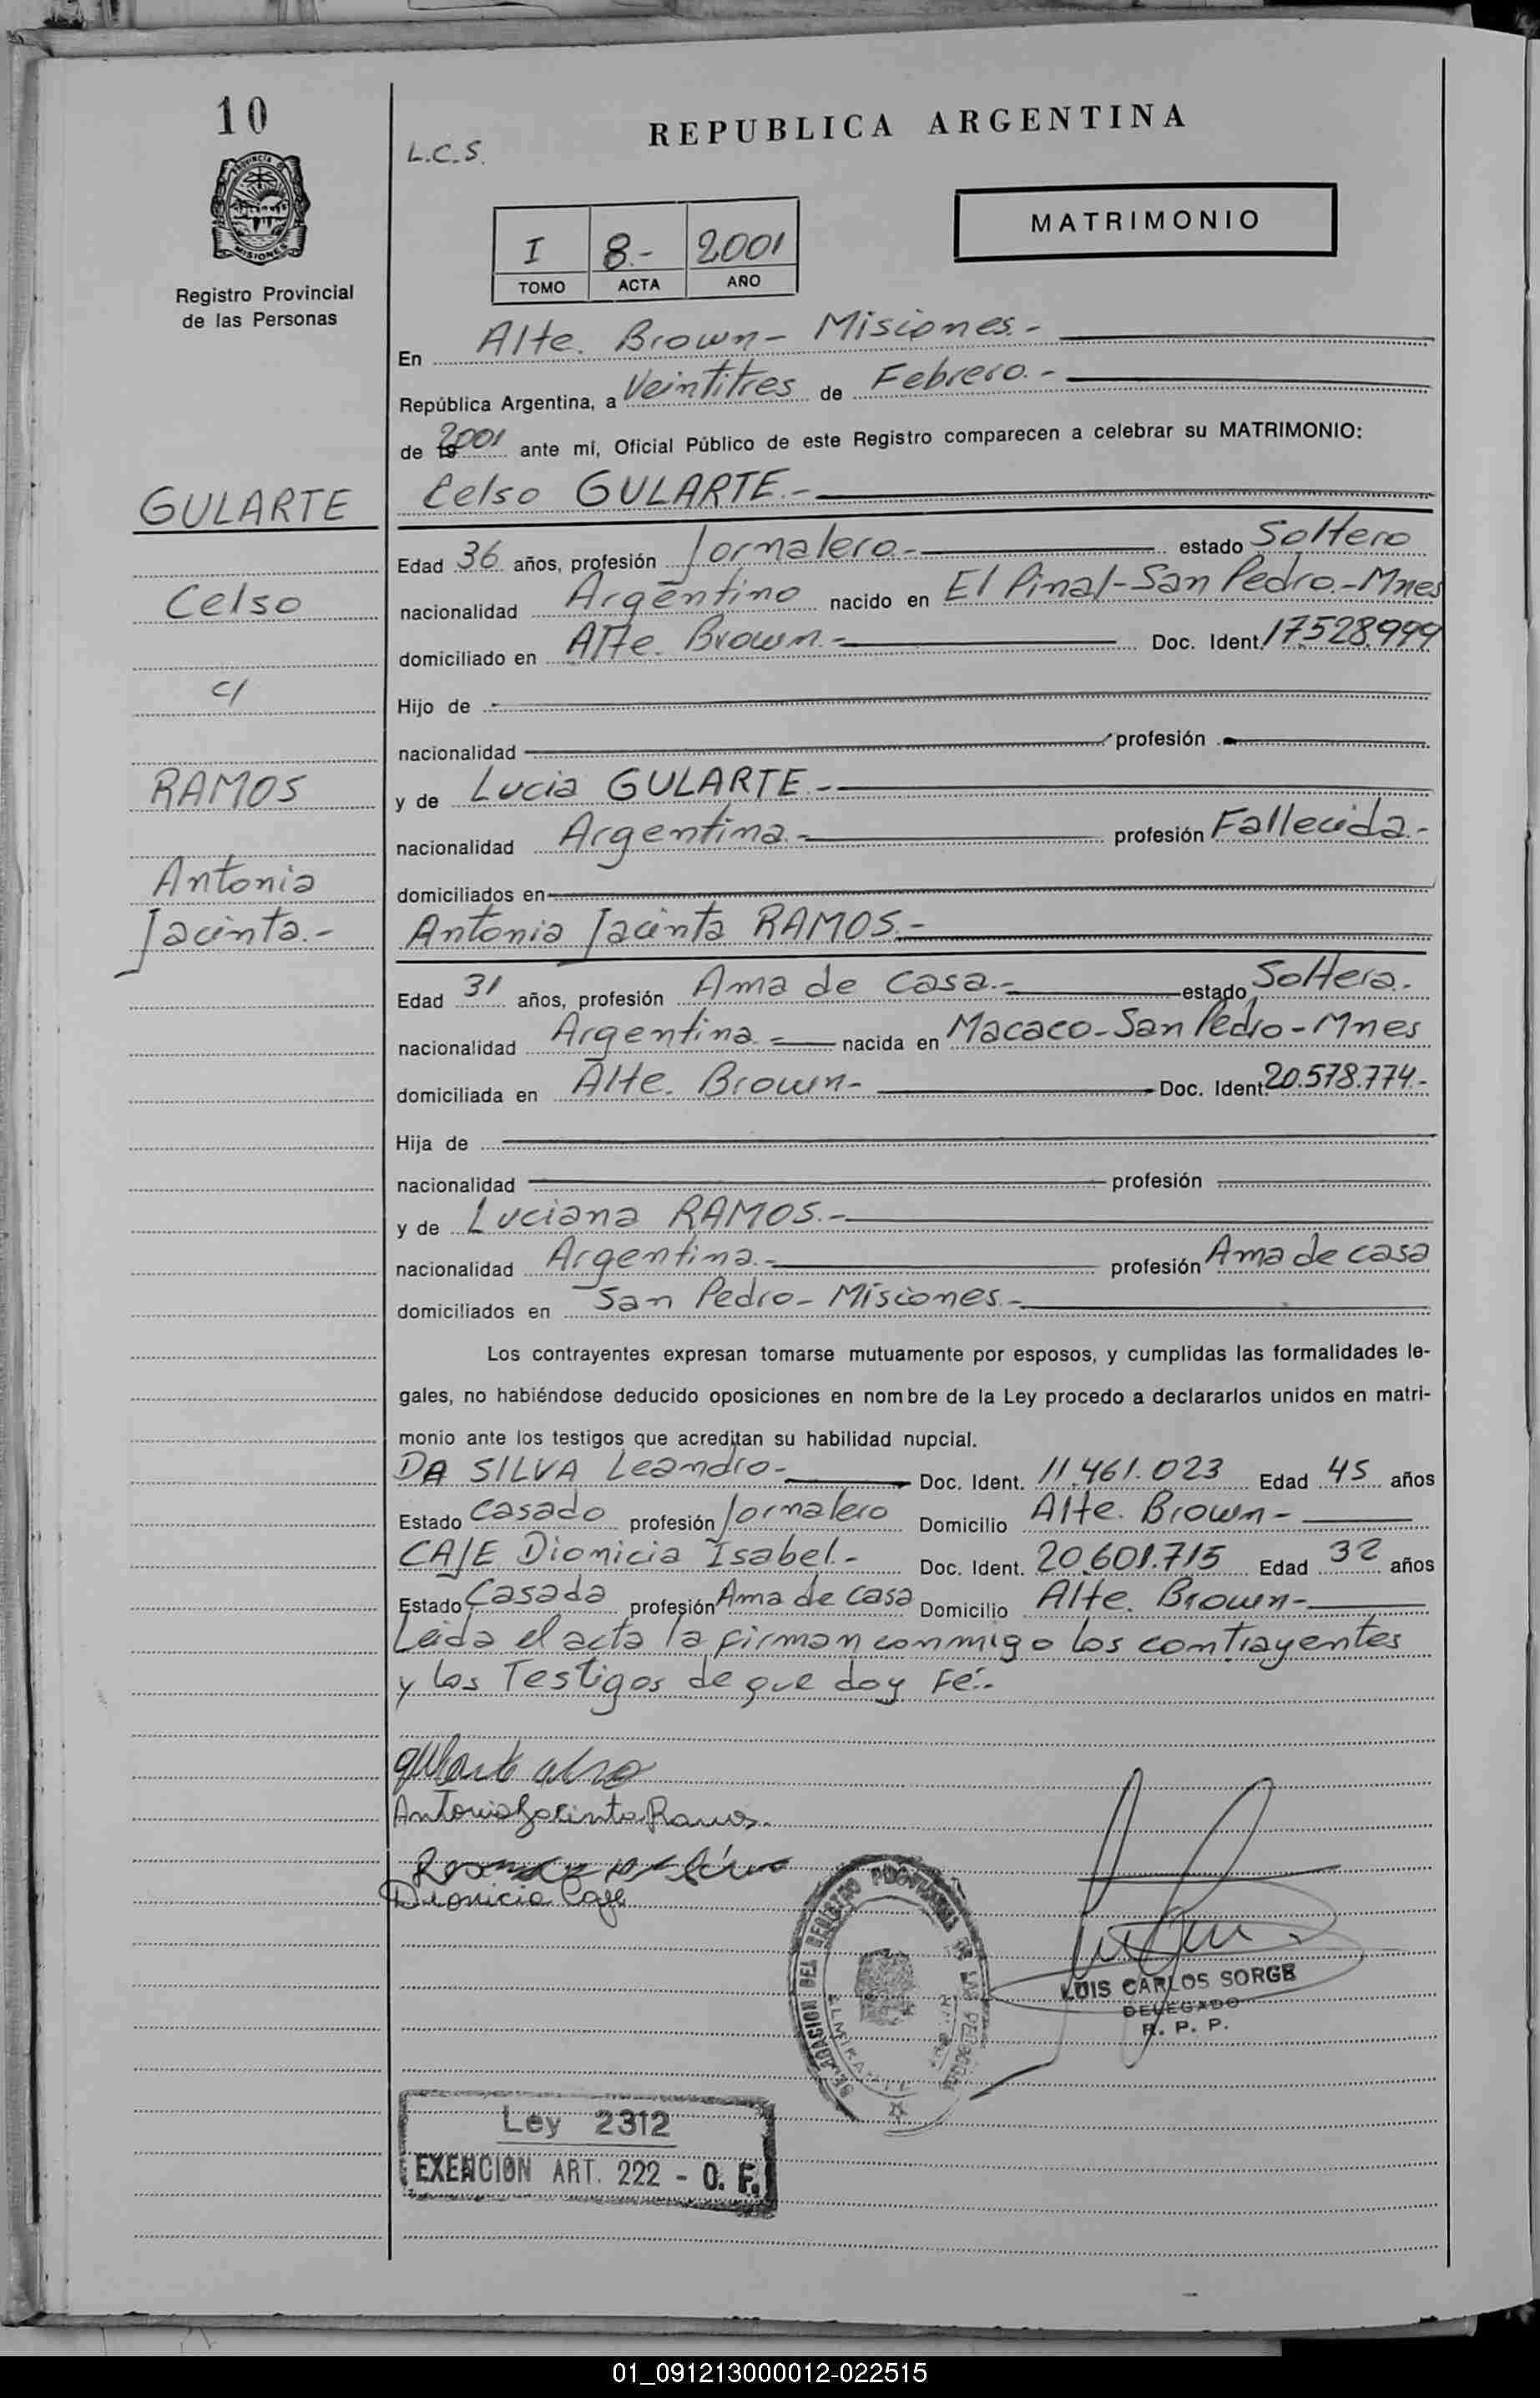 10
REPUBLICA ARGENTINA
L.C.S.
PROVINCIA DE
MISIONES
Registro Provincial
de las Personas
MATRIMONIO
I 8.- 2001
TOMO ACTA AÑO
En Alte. Brown - Misiones.-
República Argentina, a Veintitres de Febrero.-
de 19 2001 ante mí, Oficial Público de este Registro comparecen a celebrar su MATRIMONIO:
GULARTE
Celso GULARTE.-
Edad 36 años, profesión Jornalero.- estado Soltero
Celso
nacionalidad Argentino nacido en El Pinal-San Pedro.-Mnes
domiciliado en Alte. Brown.- Doc. Ident. 17.528.999
c/
Hijo de
nacionalidad profesión
RAMOS
y de Lucia GULARTE.-
nacionalidad Argentina.- profesión Fallecida.-
Antonia
domiciliados en
Jacinta.-
Antonia Jacinta RAMOS.-
Edad 31 años, profesión Ama de casa.- estado Soltera.-
nacionalidad Argentina.- nacida en Macaco-San Pedro-Mnes
domiciliada en Alte. Brown- Doc. Ident. 20.578.774.-
Hija de
nacionalidad profesión
y de Luciana RAMOS.-
nacionalidad Argentina.- profesión Ama de casa
domiciliados en San Pedro- Misiones.-
Los contrayentes expresan tomarse mutuamente por esposos, y cumplidas las formalidades le-
gales, no habiéndose deducido oposiciones en nombre de la Ley procedo a declararlos unidos en matri-
monio ante los testigos que acreditan su habilidad nupcial.
DA SILVA Leandro- Doc. Ident. 11.461.023 Edad 45 años
Estado Casado profesión Jornalero Domicilio Alte. Brown-
CAJE Dionicia Isabel.- Doc. Ident. 20.601.715 Edad 32 años
Estado Casada profesión Ama de casa Domicilio Alte. Brown-
Leida el acta la firman conmigo los contrayentes
y los Testigos de que doy Fé.-
Gularte Celso
Antonia Jacinta Ramos.
Dionicia Caje
DEL REGISTRO PROVINCIAL DE LAS
LUIS CARLOS SORGE
DELEGADO
R. P. P.
Ley 2312
EXENCION ART. 222 - O. F.
01_091213000012-022515